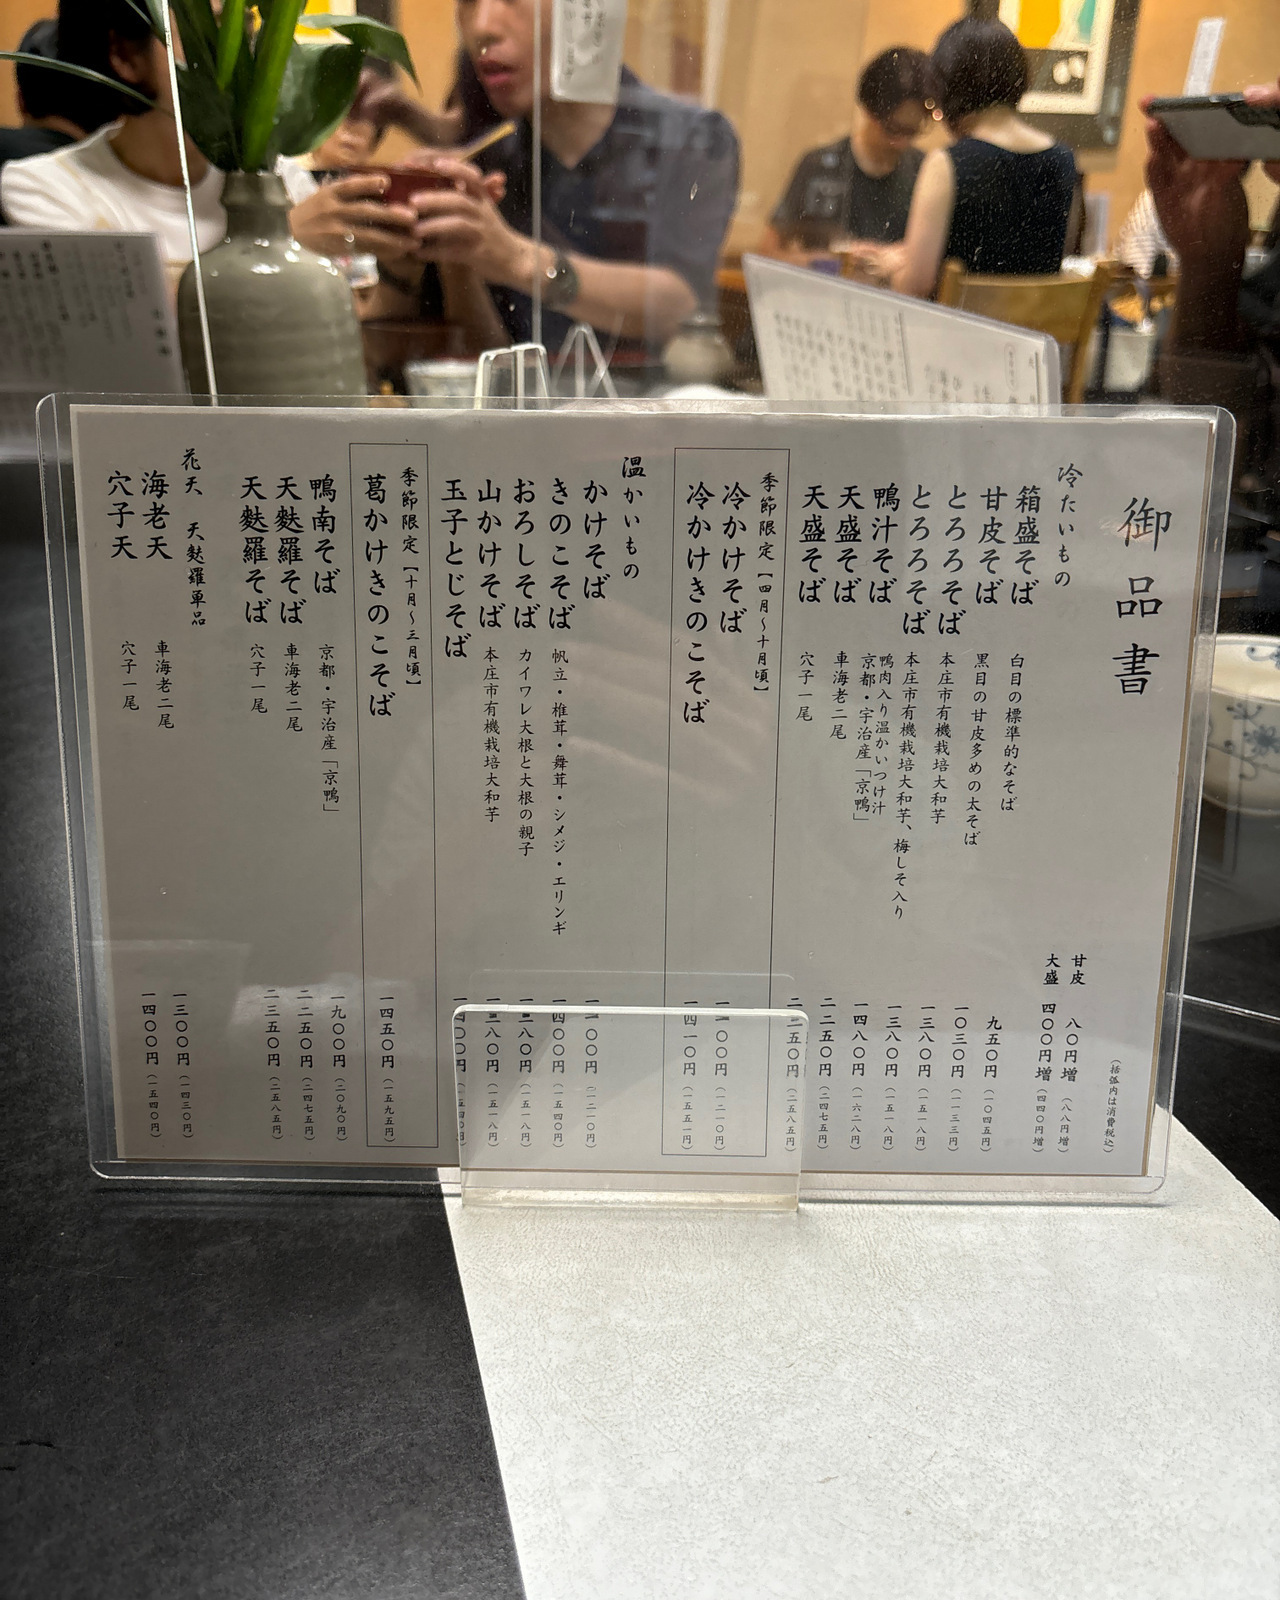 御品書
（括弧内は消費税込）
冷たいもの
甘皮 八〇円増（八八円増）
大盛 四〇〇円増（四四〇円増）
箱盛そば 白目の標準的なそば 九五〇円（一〇四五円）
甘皮そば 黒目の甘皮多めの太そば 一〇三〇円（一一三三円）
とろろそば 本庄市有機栽培大和芋 一三八〇円（一五一八円）
とろろそば 本庄市有機栽培大和芋、梅しそ入り 一三八〇円（一五一八円）
鴨汁そば 鴨肉入り温かいつけ汁
京都・宇治産「京鴨」 一四八〇円（一六二八円）
天盛そば 車海老二尾 二二五〇円（二四七五円）
天盛そば 穴子一尾 二三五〇円（二五八五円）
季節限定【四月〜十月頃】
冷かけそば 一一〇〇円（一二一〇円）
冷かけきのこそば 一四一〇円（一五五一円）
温かいもの
かけそば 一一〇〇円（一二一〇円）
きのこそば 帆立・椎茸・舞茸・シメジ・エリンギ 一四〇〇円（一五四〇円）
おろしそば カイワレ大根と大根の親子 一三八〇円（一五一八円）
山かけそば 本庄市有機栽培大和芋 一三八〇円（一五一八円）
玉子とじそば 一四〇〇円（一五四〇円）
季節限定【十月〜三月頃】
葛かけきのこそば 一四五〇円（一五九五円）
鴨南そば 京都・宇治産「京鴨」 一九〇〇円（二〇九〇円）
天麩羅そば 車海老二尾 二二五〇円（二四七五円）
天麩羅そば 穴子一尾 二三五〇円（二五八五円）
花天 天麩羅単品
海老天 車海老二尾 一三〇〇円（一四三〇円）
穴子天 穴子一尾 一四〇〇円（一五四〇円）